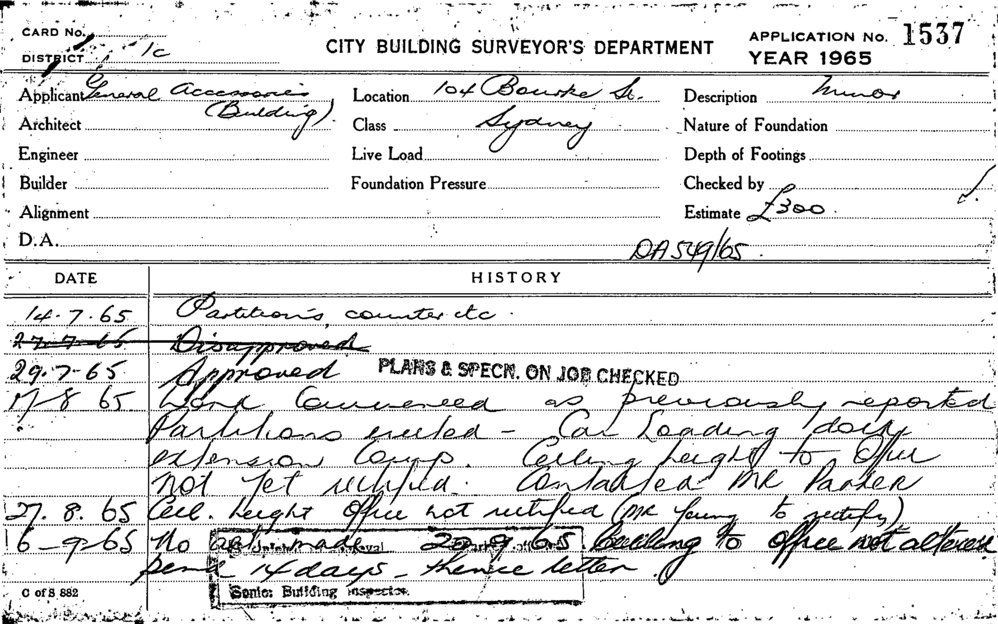 CARD No.
DISTRICT 1c
CITY BUILDING SURVEYOR'S DEPARTMENT
APPLICATION No. 1537
YEAR 1965
Applicant General Accessories (Building)
Location 104 Bourke St.
Description Minor
Architect
Class Sydney
Nature of Foundation
Engineer
Live Load
Depth of Footings
Builder
Foundation Pressure
Checked by
Alignment
Estimate £300
D.A.
DA 549/65
DATE HISTORY
14.7.65 Partitions, counter etc.
27.7.65 Disapproved
29.7.65 Approved PLANS & SPECN. ON JOB CHECKED
17/8 65 Work Commenced as previously reported
Partitions erected - Car Loading dock
extension Comp. Ceiling height to Office
not yet rectified. Contacted Mr Parker
27.8.65 Ceil. height Office not rectified (Mr Young to rectify)
16-9-65 No 20.9.65. Ceiling to Office not altered
14 days - thence letter
Senior Building Inspector.
C of S 882